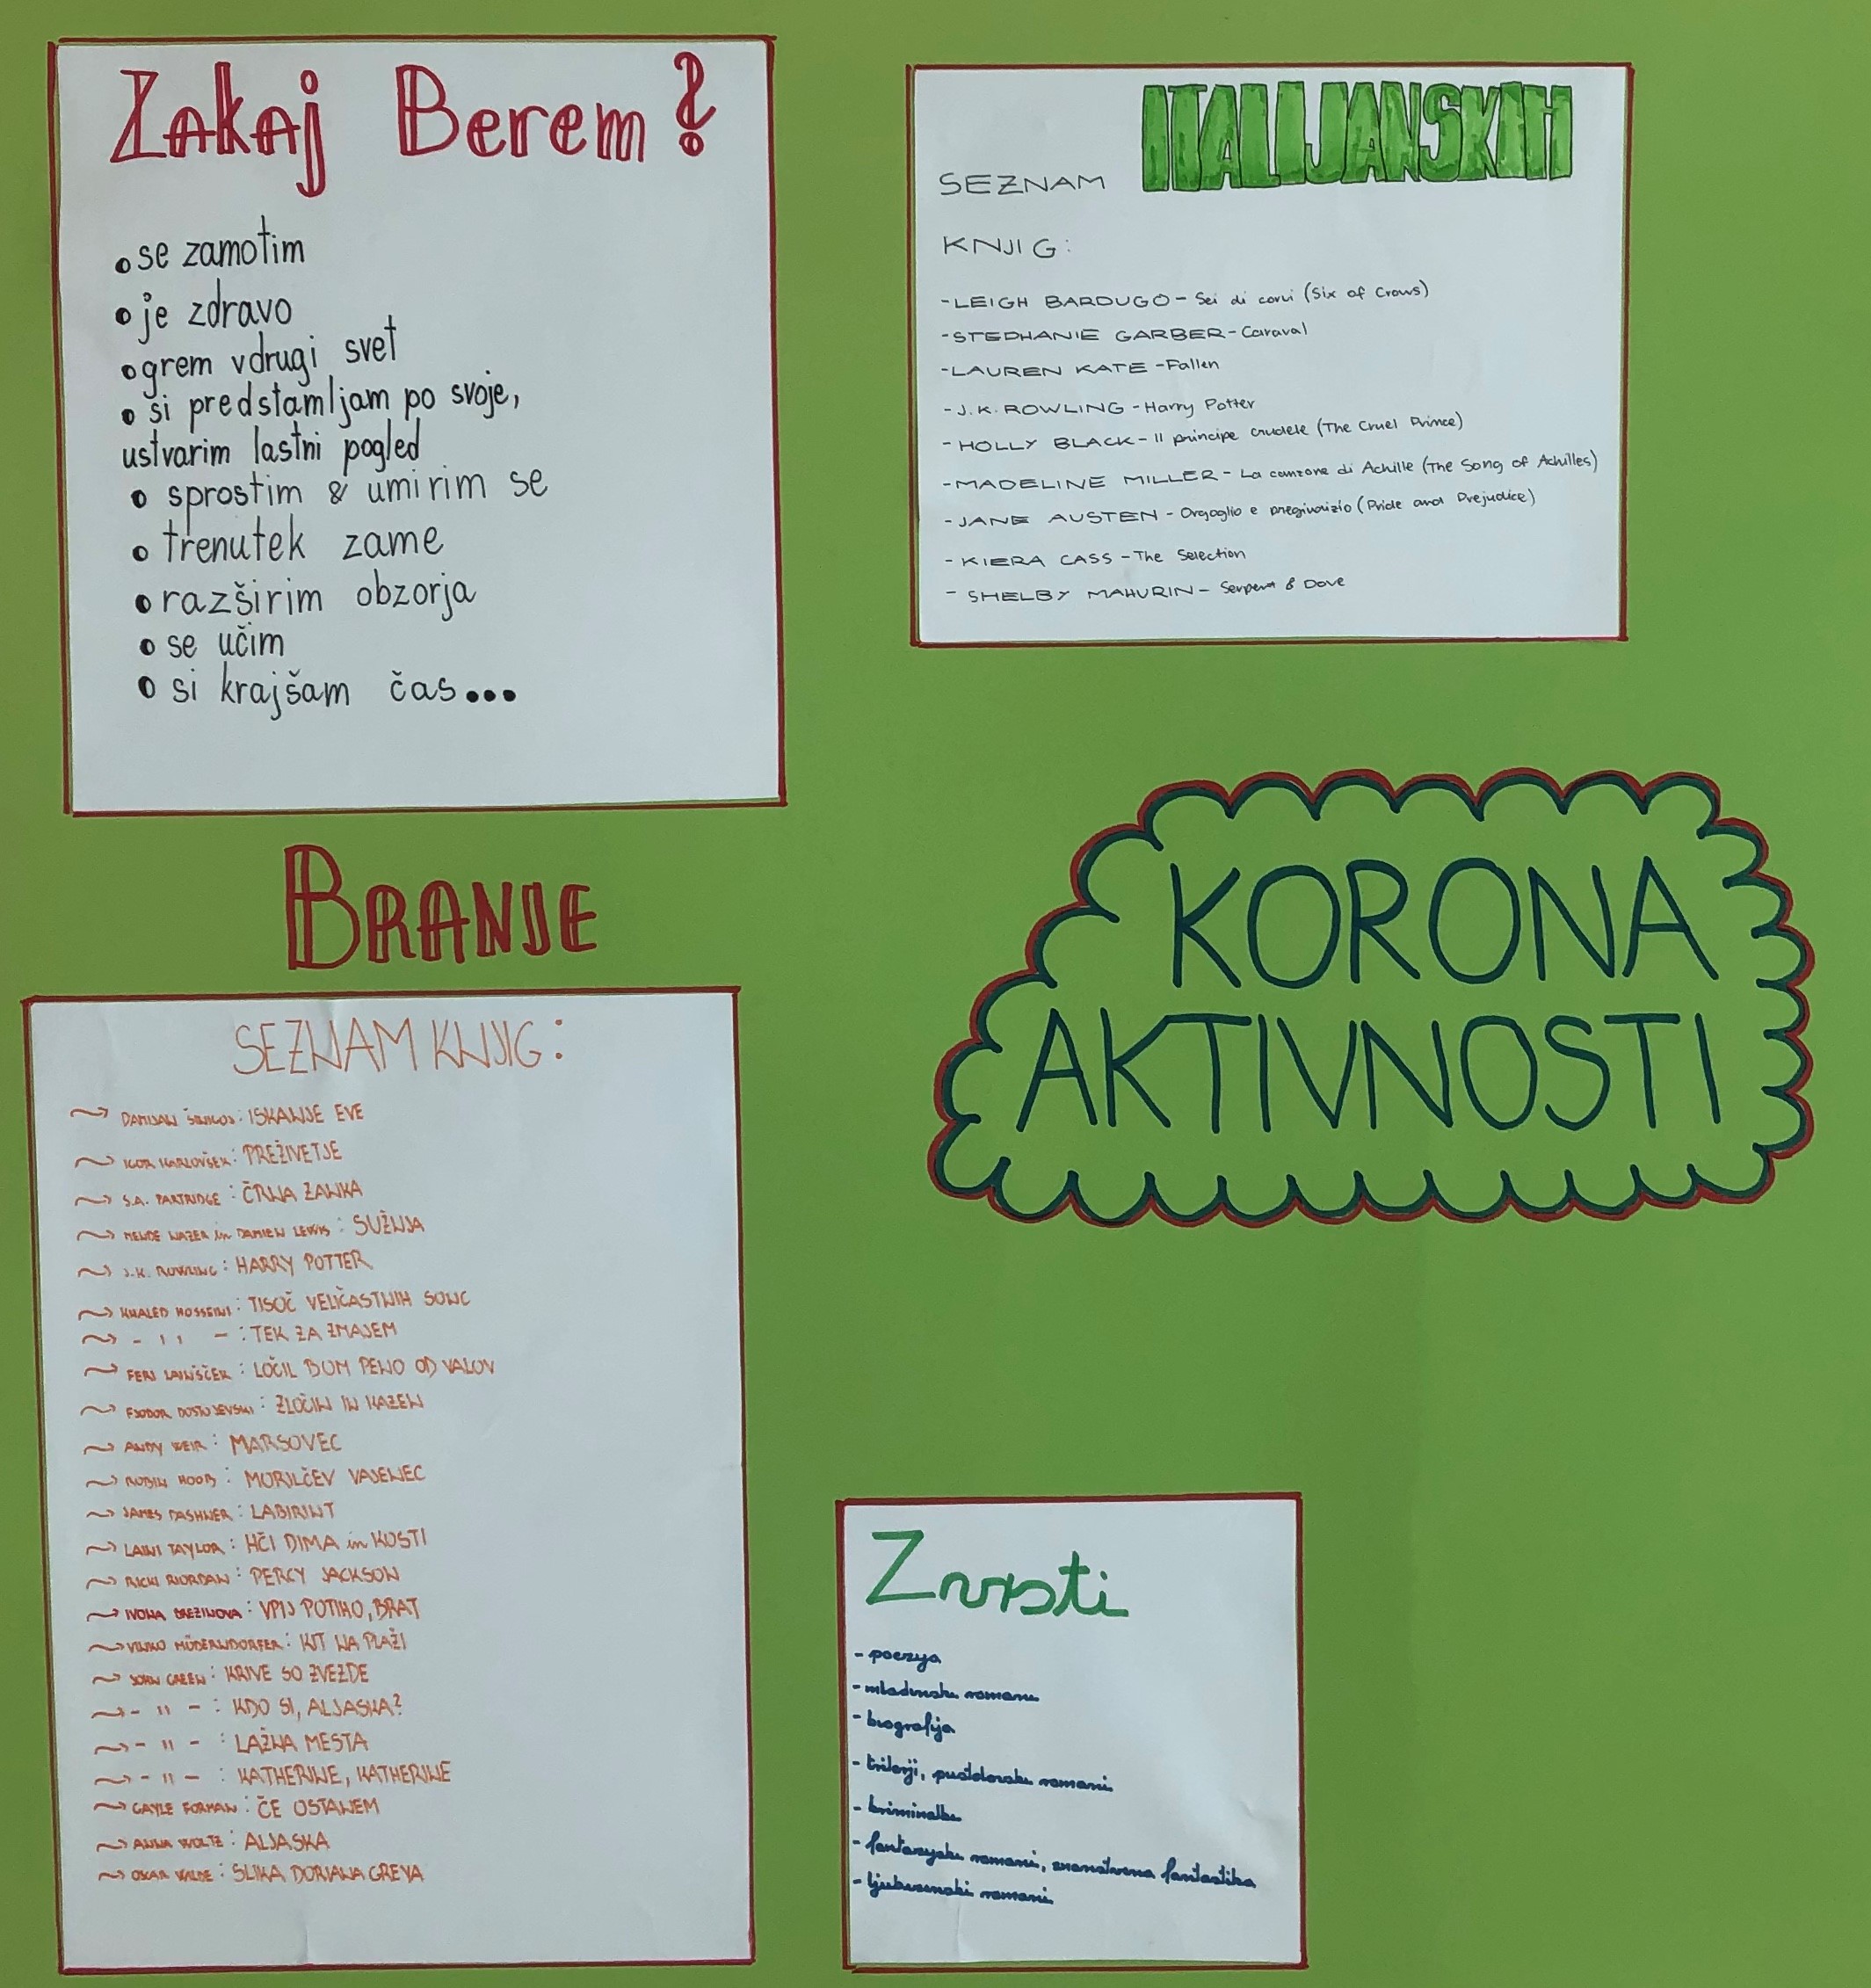 Zakaj Berem?
• se zamotim
• je zdravo
• grem v drugi svet
• si predstamljam po svoje,
ustvarim lastni pogled
• sprostim & umirim se
• trenutek zame
• razširim obzorja
• se učim
• si krajšam čas...
SEZNAM ITALIJANSKIH
KNJIG:
- LEIGH BARDUGO - Sei di corvi (Six of Crows)
- STEPHANIE GARBER - Caraval
- LAUREN KATE - Fallen
- J.K. ROWLING - Harry Potter
- HOLLY BLACK - Il principe crudele (The Cruel Prince)
- MADELINE MILLER - La canzone di Achille (The Song of Achilles)
- JANE AUSTEN - Orgoglio e pregiudizio (Pride and Prejudice)
- KIERA CASS - The Selection
- SHELBY MAHURIN - Serpent & Dove
KORONA
AKTIVNOSTI
BRANJE
SEZNAM KNJIG:
DAMIJAN ŠINIGOJ: ISKANJE EVE
IGOR KARLOVŠEK: PREŽIVETJE
S.A. PARTRIDGE: ČRNA ZANKA
MENDE NAZER in DAMIEN LEWIS: SUŽNJA
J.K. ROWLING: HARRY POTTER
KHALED HOSSEINI: TISOČ VELIČASTNIH SONC
- '' -: TEK ZA ZMAJEM
FERI LAINŠČEK: LOČIL BOM PENO OD VALOV
FJODOR DOSTOJEVSKI: ZLOČIN IN KAZEN
ANDY WEIR: MARSOVEC
ROBIN HOOB: MORILČEV VAJENEC
JAMES DASHNER: LABIRINT
LAINI TAYLOR: HČI DIMA in KOSTI
RICK RIORDAN: PERCY JACKSON
IVONA BREZINOVA: VPIJ POTIHO, BRAT
VINKO MÖDERNDORFER: KIT NA PLAŽI
JOHN GREEN: KRIVE SO ZVEZDE
- '' -: KDO SI, ALJASKA?
- '' -: LAŽNA MESTA
- '' -: KATHERINE, KATHERINE
GAYLE FORMAN: ČE OSTANEM
ANNA WOLTZ: ALJASKA
OSKAR WILDE: SLIKA DORIANA GREYA
Zvrsti
- poezija
- mladinski romani
- biografija
- trilerji, pustolovski romani
- kriminalke
- fantazijski romani, znanstvena fantastika
- ljubezenski romani